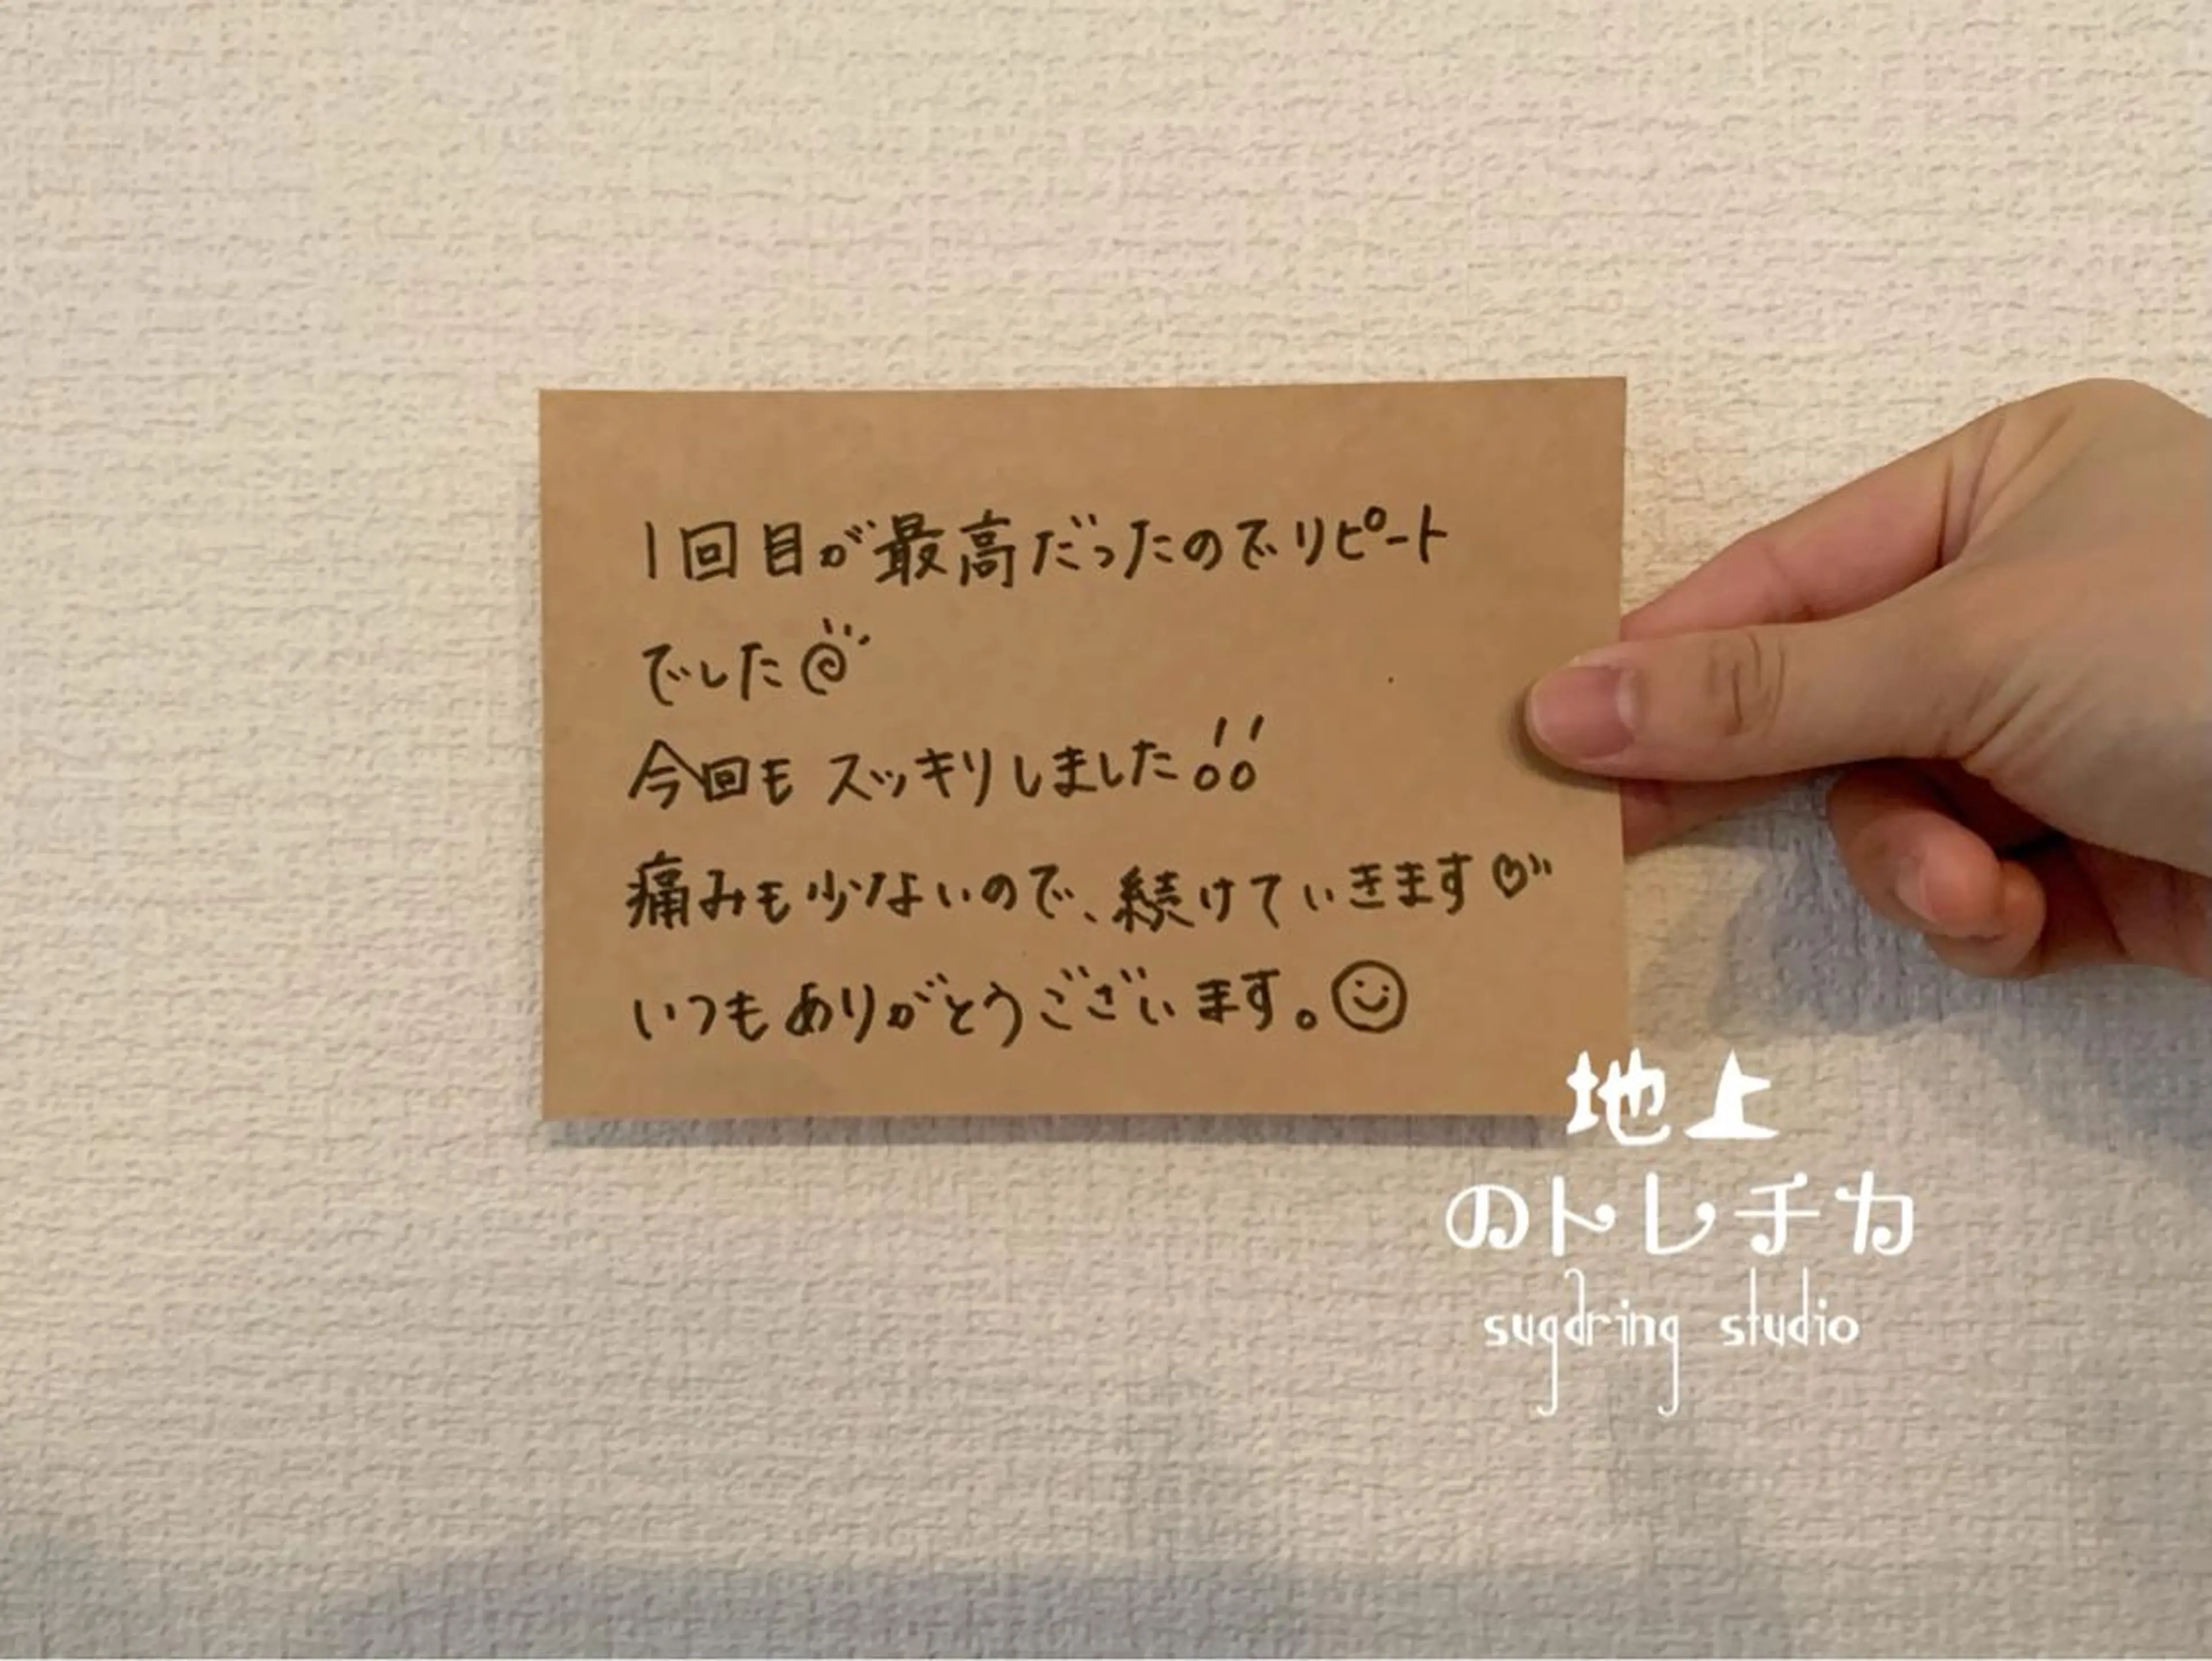 1回目が最高だったのでリピート
でした
今回も スッキリしました!!
痛みも少ないので、続けていきます♡
いつもありがとうございます。☺
地上
のトレチカ
sugaring studio